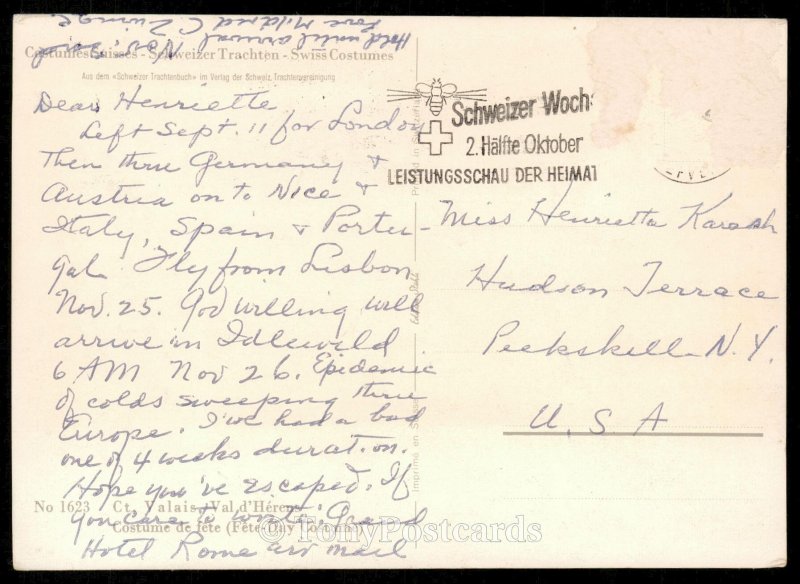 Hold until arrival
Nov. 30th
Love Mildred C.
Costumes Suisses - Schweizer Trachten - Swiss Costumes
Aus dem «Schweizer Trachtenbuch» im Verlag der Schweiz. Trachtenvereinigung
Dear Henriette
Left Sept. 11 for London
Then thru Germany &
Austria on to Nice &
Italy, Spain & Portu-
gal. Fly from Lisbon
Nov. 25. God willing will
arrive in Idlewild
6 AM Nov 26. Epidemic
of colds sweeping thru
Europe. I've had a bad
one of 4 weeks duration.
Hope you've escaped. If
you care to write: Grand
Hotel Rome air mail
No 1623 Ct. Valais, Val d'Hérens
Costume de fête (Fête-Day Costume)
Printed in Switzerland
Imprimé en Suisse
Schweizer Woch
2. Hälfte Oktober
LEISTUNGSSCHAU DER HEIMAT
Miss Henrietta Karash
Hudson Terrace
Peekskill - N.Y.
U. S. A
© TonyPostcards